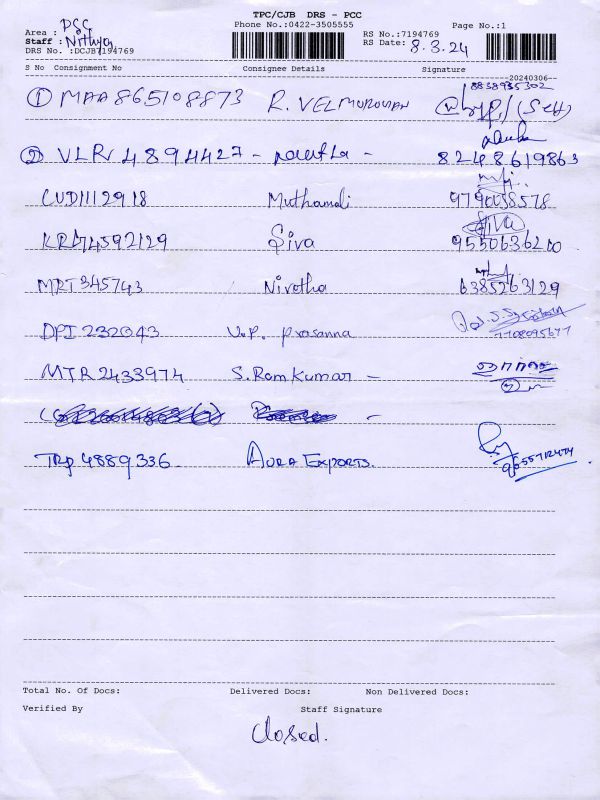 TPC/CJB DRS - PCC
Area : PSG Phone No.:0422-3505555 RS No.:7194769 Page No.:1
Staff : Nithya RS Date: 8.3.24
DRS No. :DCJB7194769
S No Consignment No Consignee Details Signature
20240306
8838935302
① MAA865108873 R. VELMURUGAN (Self)
② VLR 4894427 - - 8248619863
CUD1112918 Muthamdi 9790058578
Siva
KRA74592129 Siva 9550636200
MRT345743 Nivetha 6385263129
DPI 232043 V.P. Prasanna 7708095677
MTR2433974 S. Ram Kumar -
TRP 4889336 AURA EXPORTS.
Total No. Of Docs: Delivered Docs: Non Delivered Docs:
Verified By Staff Signature
Closed.